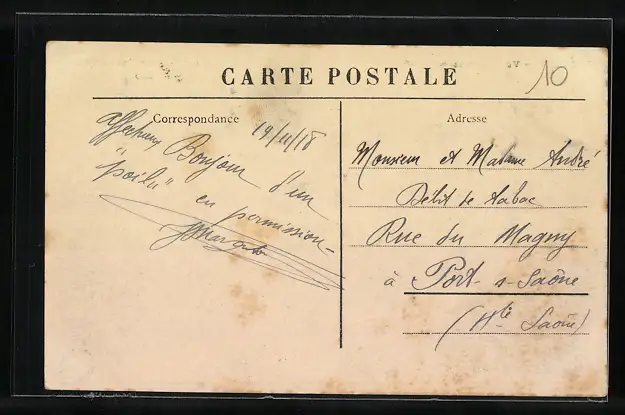 10
CARTE POSTALE
Correspondance
Adresse
19/11/18
Affectueux Bonjour d'un
"poilu"
en permission
Monsieur et Madame André
Débit de tabac
Rue du Magny
à Port-s-Saône
(Hte Saône)